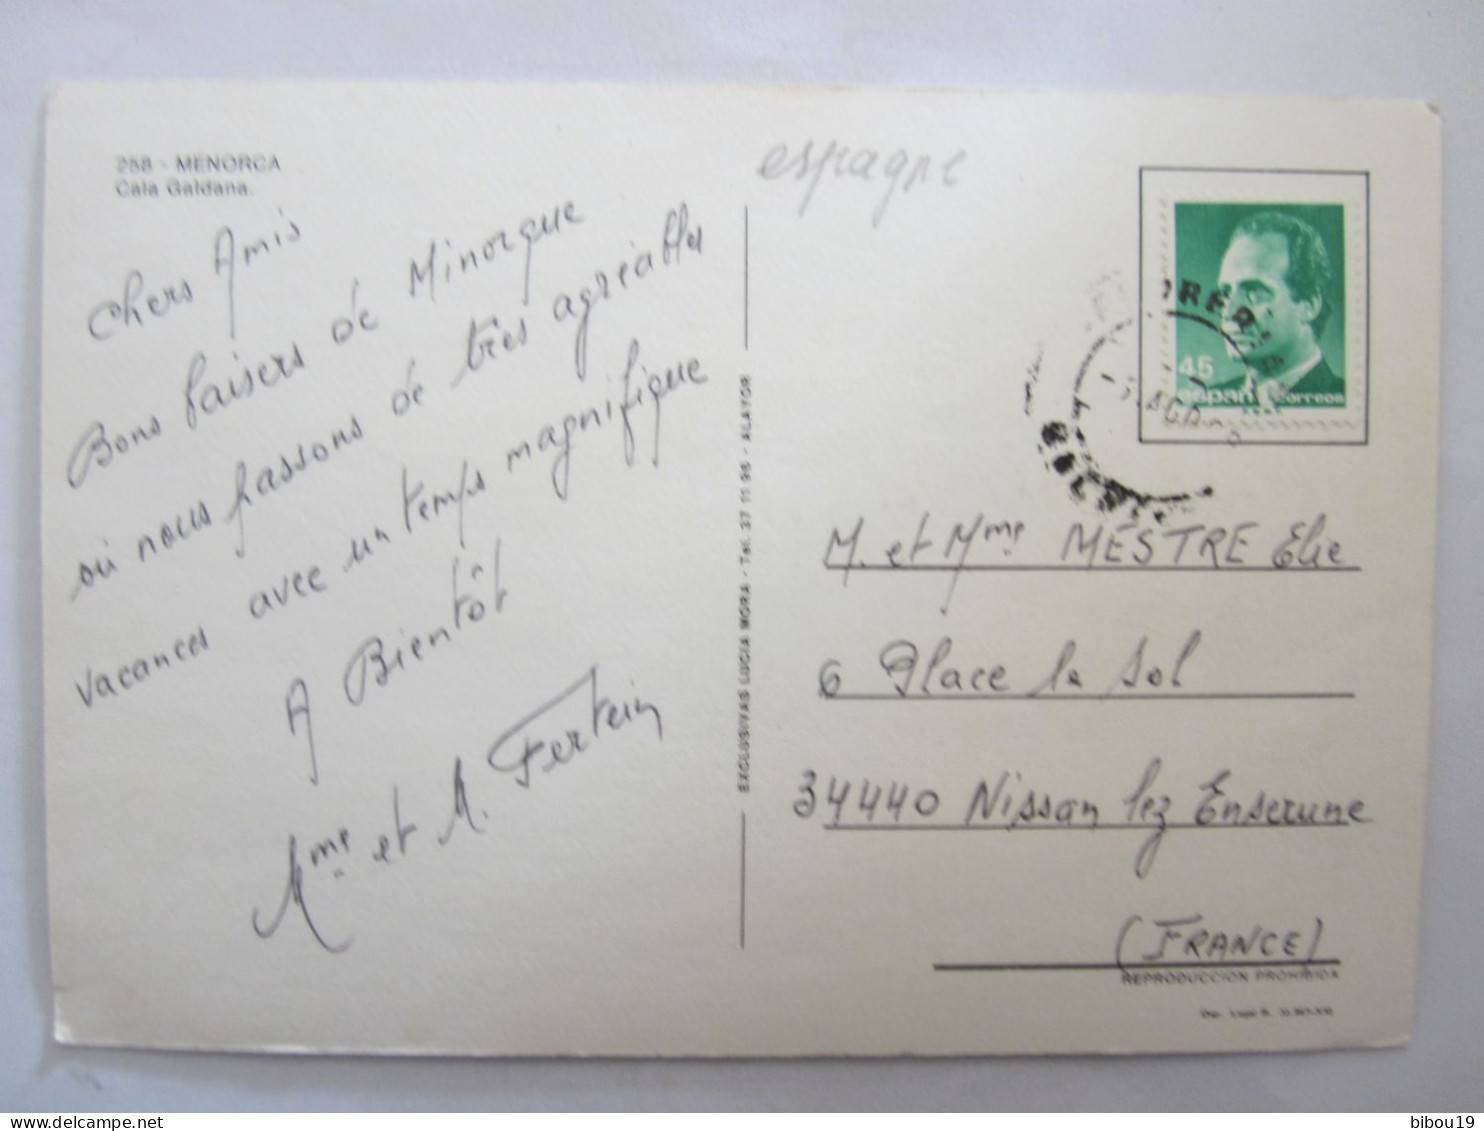 258 - MENORCA
Cala Galdana.
Chers Amis
Bons baisers de Minorque
où nous passons de très agréables
vacances avec un temps magnifique
A Bientôt
Mme et M. Fertein
EXCLUSIVAS LUCIA MORA - Tel. 37 11 96 - ALAYOR
espagne
45
españa correos
M. et Mme MESTRE Elie
6 Place le Sol
34440 Nissan lez Enserune
(FRANCE)
REPRODUCCION PROHIBIDA
delcampe.net
bibou19